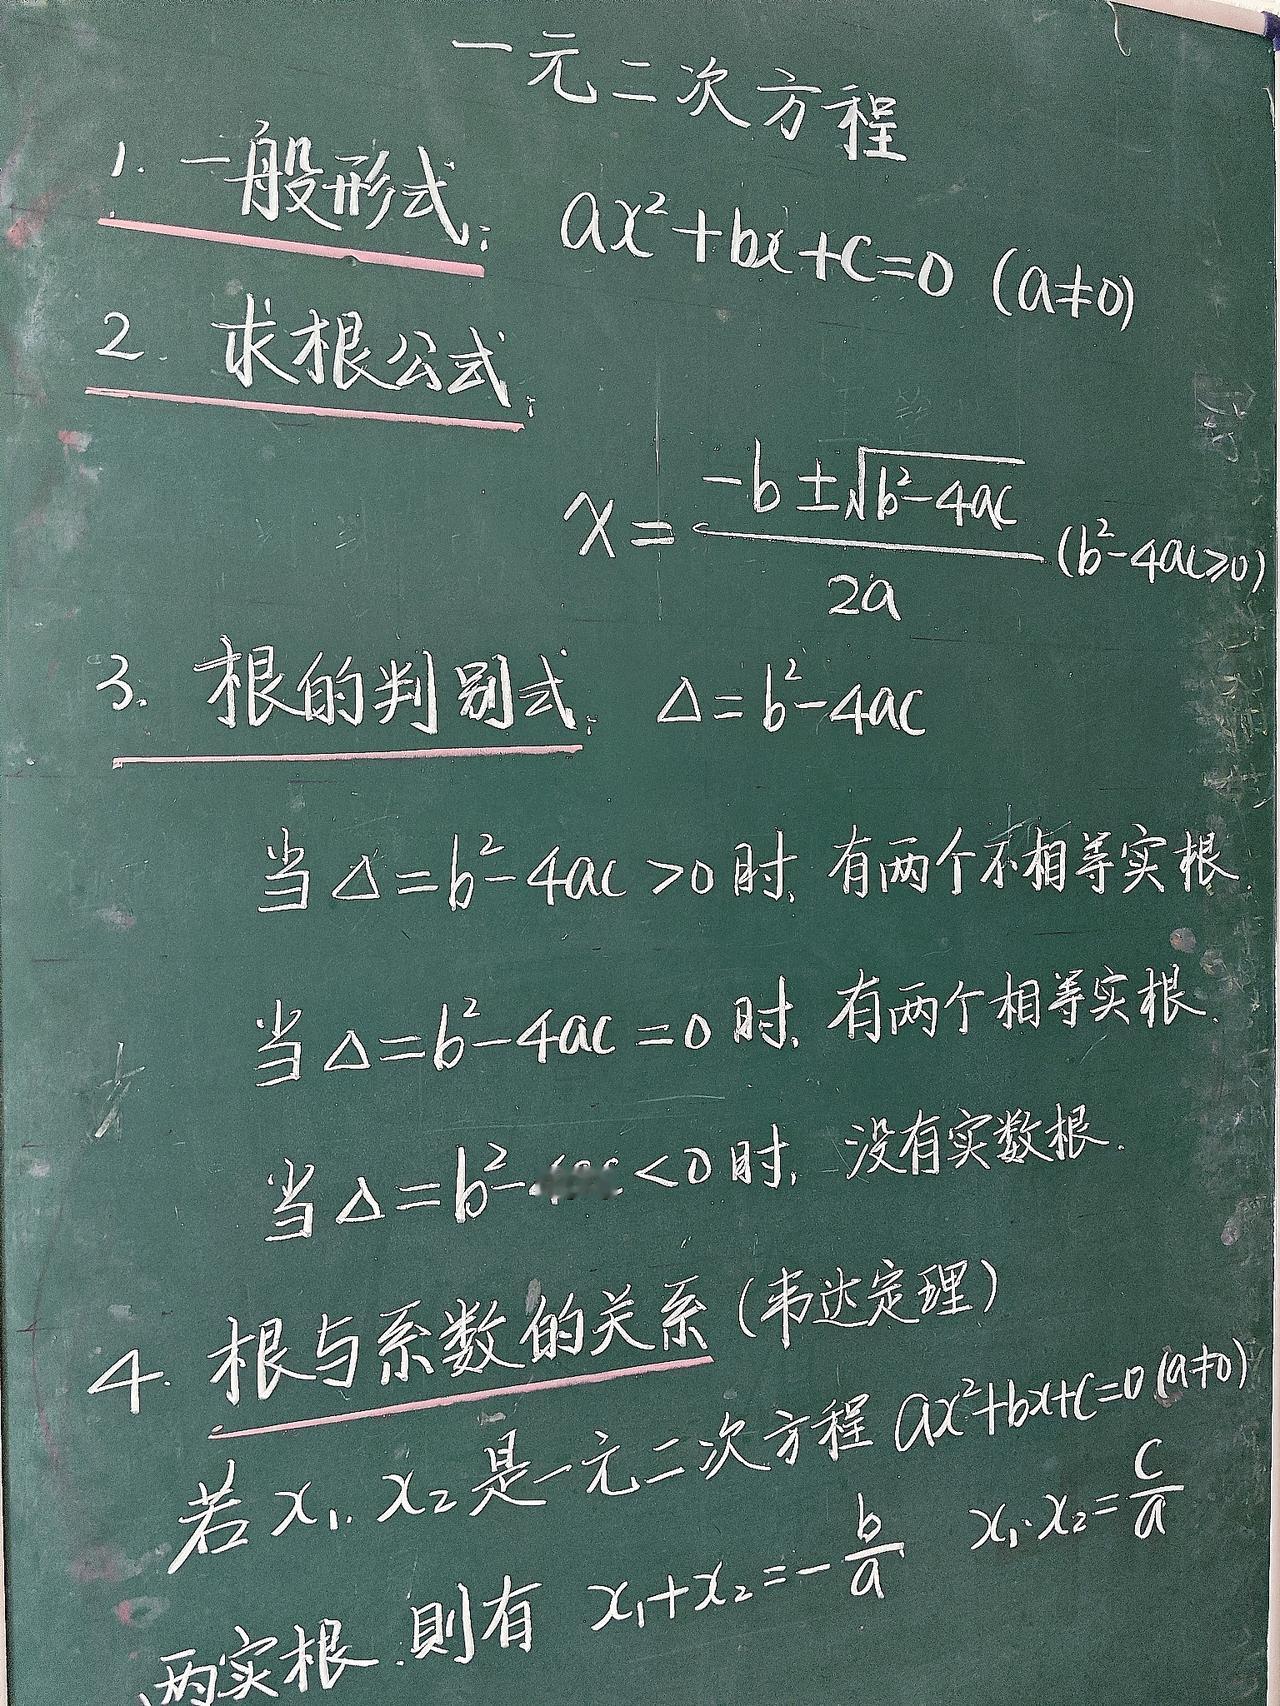 一元二次方程
1. 一般形式: ax²+bx+c=0 (a≠0)
2. 求根公式:
x = (-b±√(b²-4ac))/(2a) (b²-4ac≥0)
3. 根的判别式: Δ=b²-4ac
当Δ=b²-4ac>0时, 有两个不相等实根.
当Δ=b²-4ac=0时, 有两个相等实根.
当Δ=b²- <0时, 没有实数根.
4. 根与系数的关系 (韦达定理)
若x₁, x₂是一元二次方程ax²+bx+c=0 (a≠0)
两实根, 則有 x₁+x₂=-b/a x₁·x₂=c/a